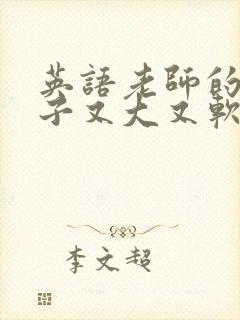 英語老師的
子又大又軟
李文超